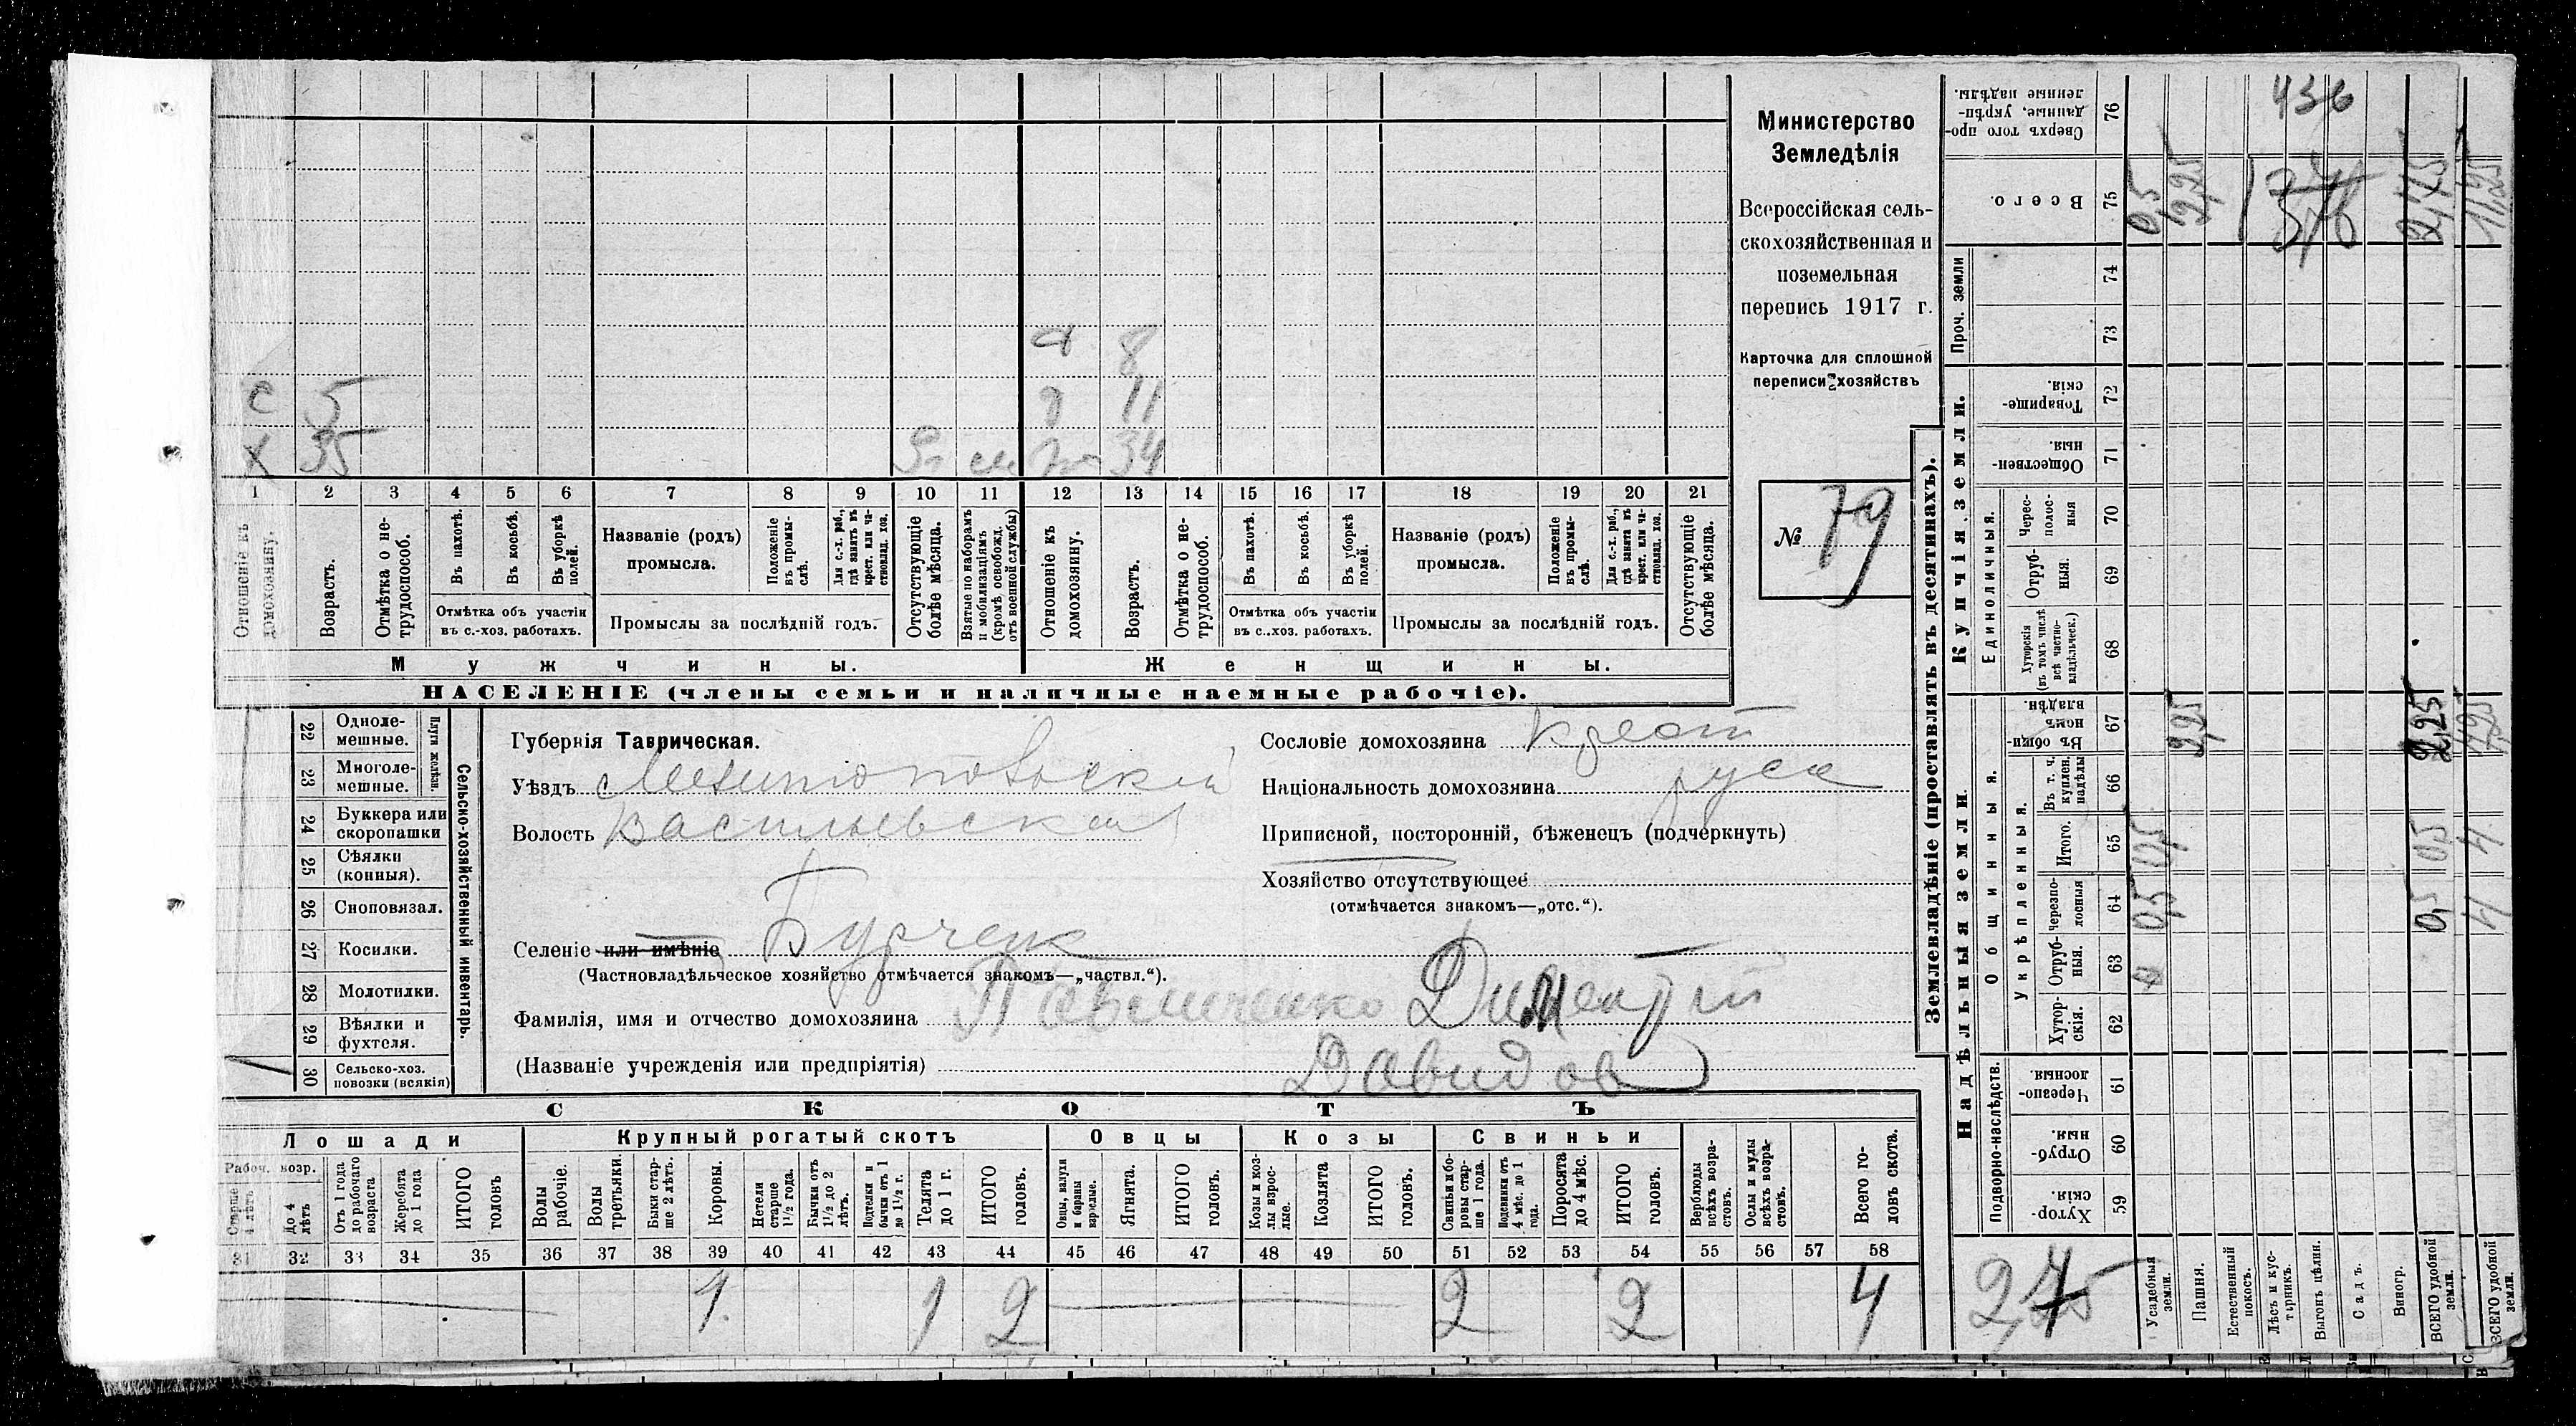 Министерство
Земледѣлія
Всероссійская сель-
скохозяйственная и
поземельная
перепись 1917 г.
Карточка для сплошной
переписи хозяйствъ
№ 79
с 5
х 35
8
11
34
1 2 3 4 5 6 7 8 9 10 11 12 13 14 15 16 17 18 19 20 21
Отношеніе къ домохозяину.
Возрастъ.
Отмѣтка о не-трудоспособ.
Въ пахотѣ.
Въ косьбѣ.
Въ уборкѣ полей.
Отмѣтка объ участіи
въ с.-хоз. работахъ.
Названіе (родъ)
промысла.
Положеніе въ промы-слѣ.
Для с.-х. раб., гдѣ занятъ въ крест. или ча-стновлад. хоз.
Промыслы за послѣдній годъ.
Отсутствующіе болѣе мѣсяца.
Взятые по наборамъ и мобилизаціямъ (кромѣ освобожд. отъ военной службы)
Отношеніе къ домохозяину.
Возрастъ.
Отмѣтка о не-трудоспособ.
Въ пахотѣ.
Въ косьбѣ.
Въ уборкѣ полей.
Отмѣтка объ участіи
въ с.-хоз. работахъ.
Названіе (родъ)
промысла.
Положеніе въ промы-слѣ.
Для с.-х. раб., гдѣ занята въ крест. или ча-стновлад. хоз.
Промыслы за послѣдній годъ.
Отсутствующіе болѣе мѣсяца.
Мужчины. Женщины.
НАСЕЛЕНІЕ (члены семьи и наличные наемные рабочіе).
Сельско-хозяйственный инвентарь.
Плуги желѣзн.
22 Одноле-мешные.
23 Многоле-мешные.
24 Буккера или скоропашки
25 Сѣялки (конныя).
26 Сноповязал.
27 Косилки.
28 Молотилки.
29 Вѣялки и фухтеля.
30 Сельско-хоз. повозки (всякія)
Губернія Таврическая.
Уѣздъ Мелитопольскій
Волость Васильевская
Селеніе или имѣніе Бурчак
(Частновладѣльческое хозяйство отмѣчается знакомъ—„частвл.“).
Фамилія, имя и отчество домохозяина Дементій
(Названіе учрежденія или предпріятія) Давидов
Сословіе домохозяина крест
Національность домохозяина руск
Приписной, посторонній, бѣженецъ (подчеркнуть)
Хозяйство отсутствующее
(отмѣчается знакомъ—„отс.“).
СКОТЪ
Лошади Крупный рогатый скотъ Овцы Козы Свиньи
Рабоч. возр.
Старше 4 лѣтъ
До 4 лѣтъ
Отъ 1 года до рабочаго возраста
Жеребята до 1 года
ИТОГО головъ
Волы рабочіе.
Волы третьяки.
Быки стар-ше 2 лѣтъ.
Коровы.
Нетели старше 1½ года.
Бычки отъ 1½ до 2 лѣтъ.
Подтелки и бычки отъ 1 до 1½ г.
Телята до 1 г.
ИТОГО головъ.
Овцы, валухи и бараны взрослые.
Ягнята.
ИТОГО головъ.
Козы и коз-лы взрос-лые.
Козлята
ИТОГО головъ.
Свиньи и бо-ровы стар-ше 1 года.
Подсвинки отъ 4 мѣс. до 1 года.
Поросята до 4 мѣс.
ИТОГО головъ.
Верблюды всѣхъ возра-стовъ.
Ослы и мулы всѣхъ возра-стовъ.
Всего го-ловъ скота.
31 32 33 34 35 36 37 38 39 40 41 42 43 44 45 46 47 48 49 50 51 52 53 54 55 56 57 58
1 1 2 2 2 4
Землевладѣніе (проставлять въ десятинахъ).
Надѣльныя земли
Купчія земли.
Проч. земли
Подворно-наслѣдств.
Общинныя.
Укрѣпленныя.
Единоличныя.
Хутор-скія. 59
Отруб-ныя. 60
Черезпо-лосныя. 61
Хутор-скія. 62
Отруб-ныя. 63
Черезпо-лосныя 64
Итого. 65
Въ т. ч. куплен. надѣлы 66
Въ общин-номъ владѣн. 67
Хуторскія (въ томъ числѣ всѣ частно-владѣльческ.) 68
Отруб-ныя. 69
Черес-полос-ныя 70
Обществен-ныя 71
Товарище-скія. 72
73
74
Всего. 75
Сверхъ того про-данные, укрѣп-ленные надѣлы. 76
Усадебныя земли. 0,5 0,5 0,5
Пашня. 2,25 2,25
Естественный покосъ.
Лѣсъ и кус-тарникъ.
Выгонъ цѣлин.
Садъ.
Виногр.
ВСЕГО удобной земли. 0,5 0,5 2,25 2,75
ВСЕГО удобной земли. 4 4
436
2,75